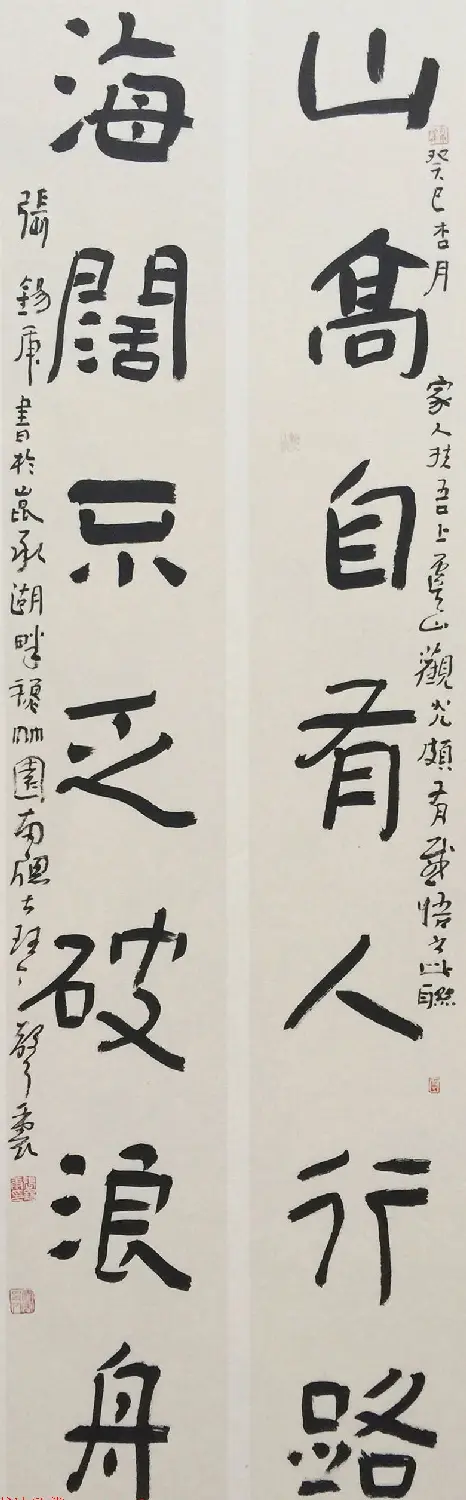 山高自有人行路
海闊不乏破浪舟
癸巳杏月
家人扶吾上虞山觀光頗有感悟書此聯
張錫庚書於昆承湖畔
園南窗